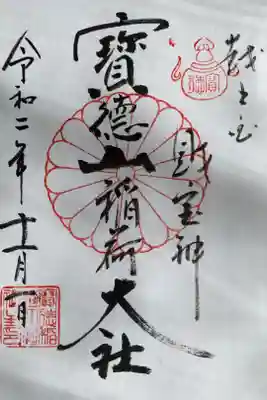 財宝神
寳德山稲荷大社
令和二年十一月一日